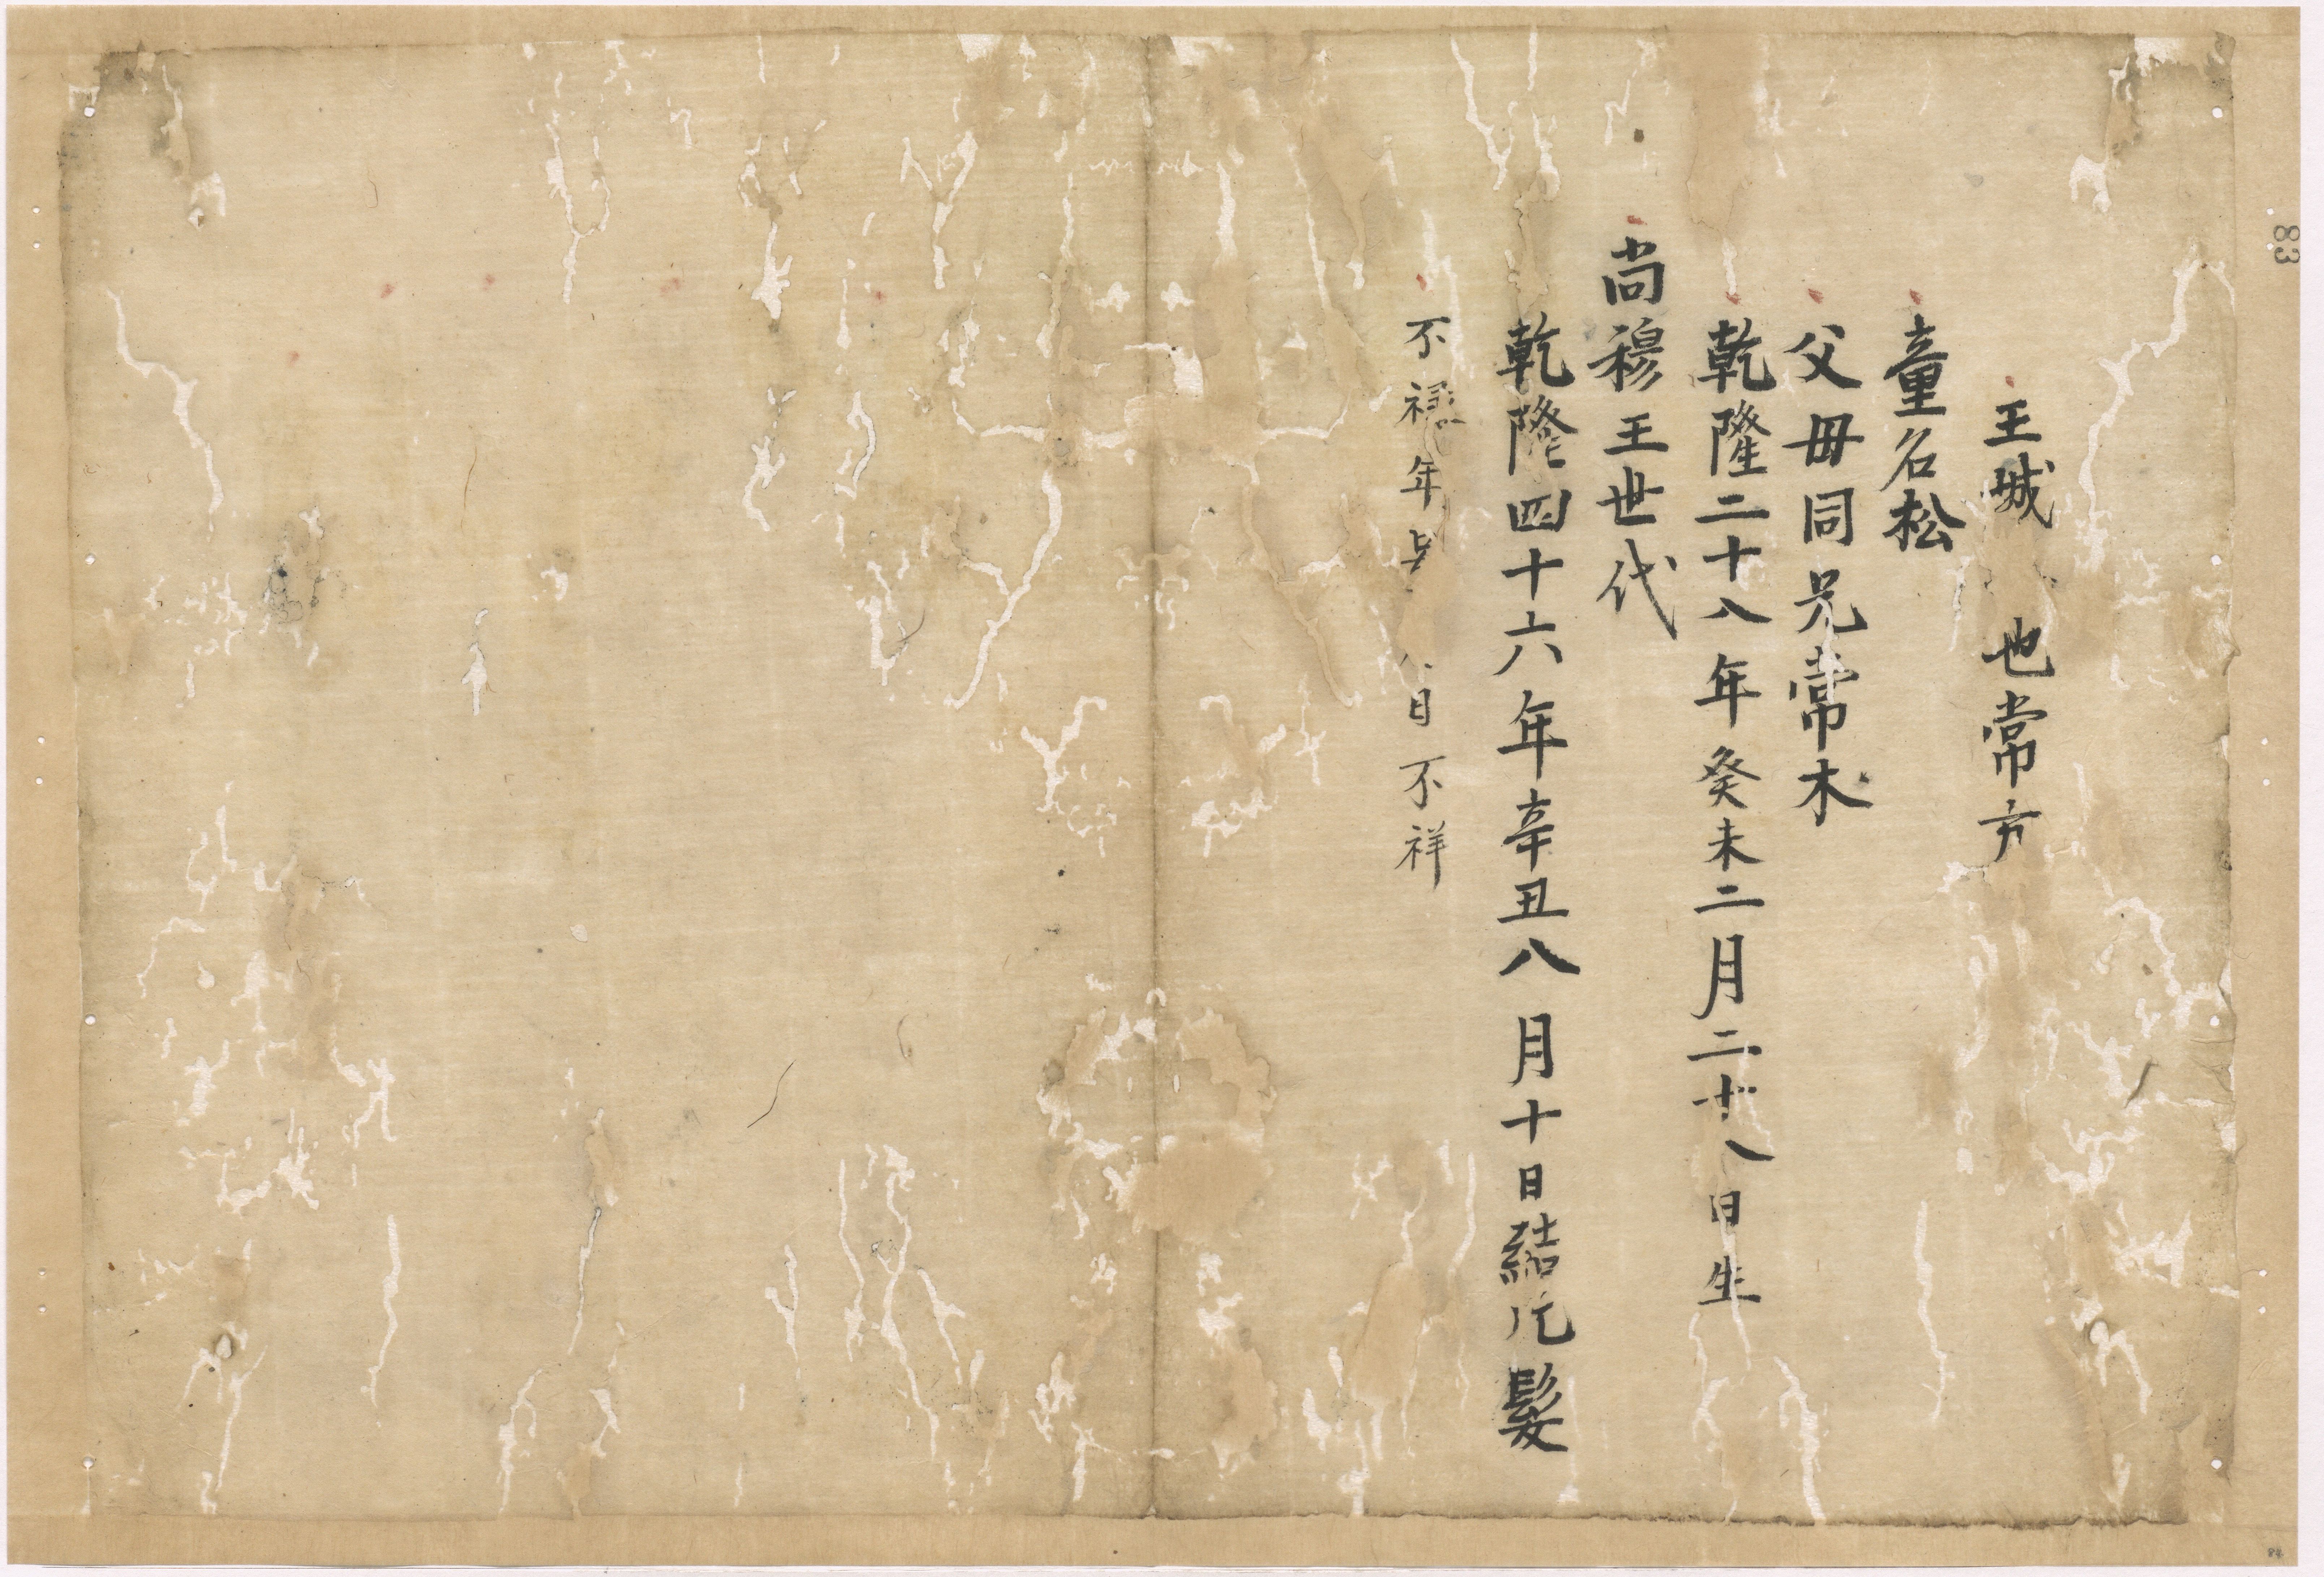 王城 也常方
童名松
父毋同兄常木
乾隆二十八年癸未二月二十八日生
尚穆王世代
乾隆四十六年辛丑八月十日結片髪
不禄年 月日不祥
83